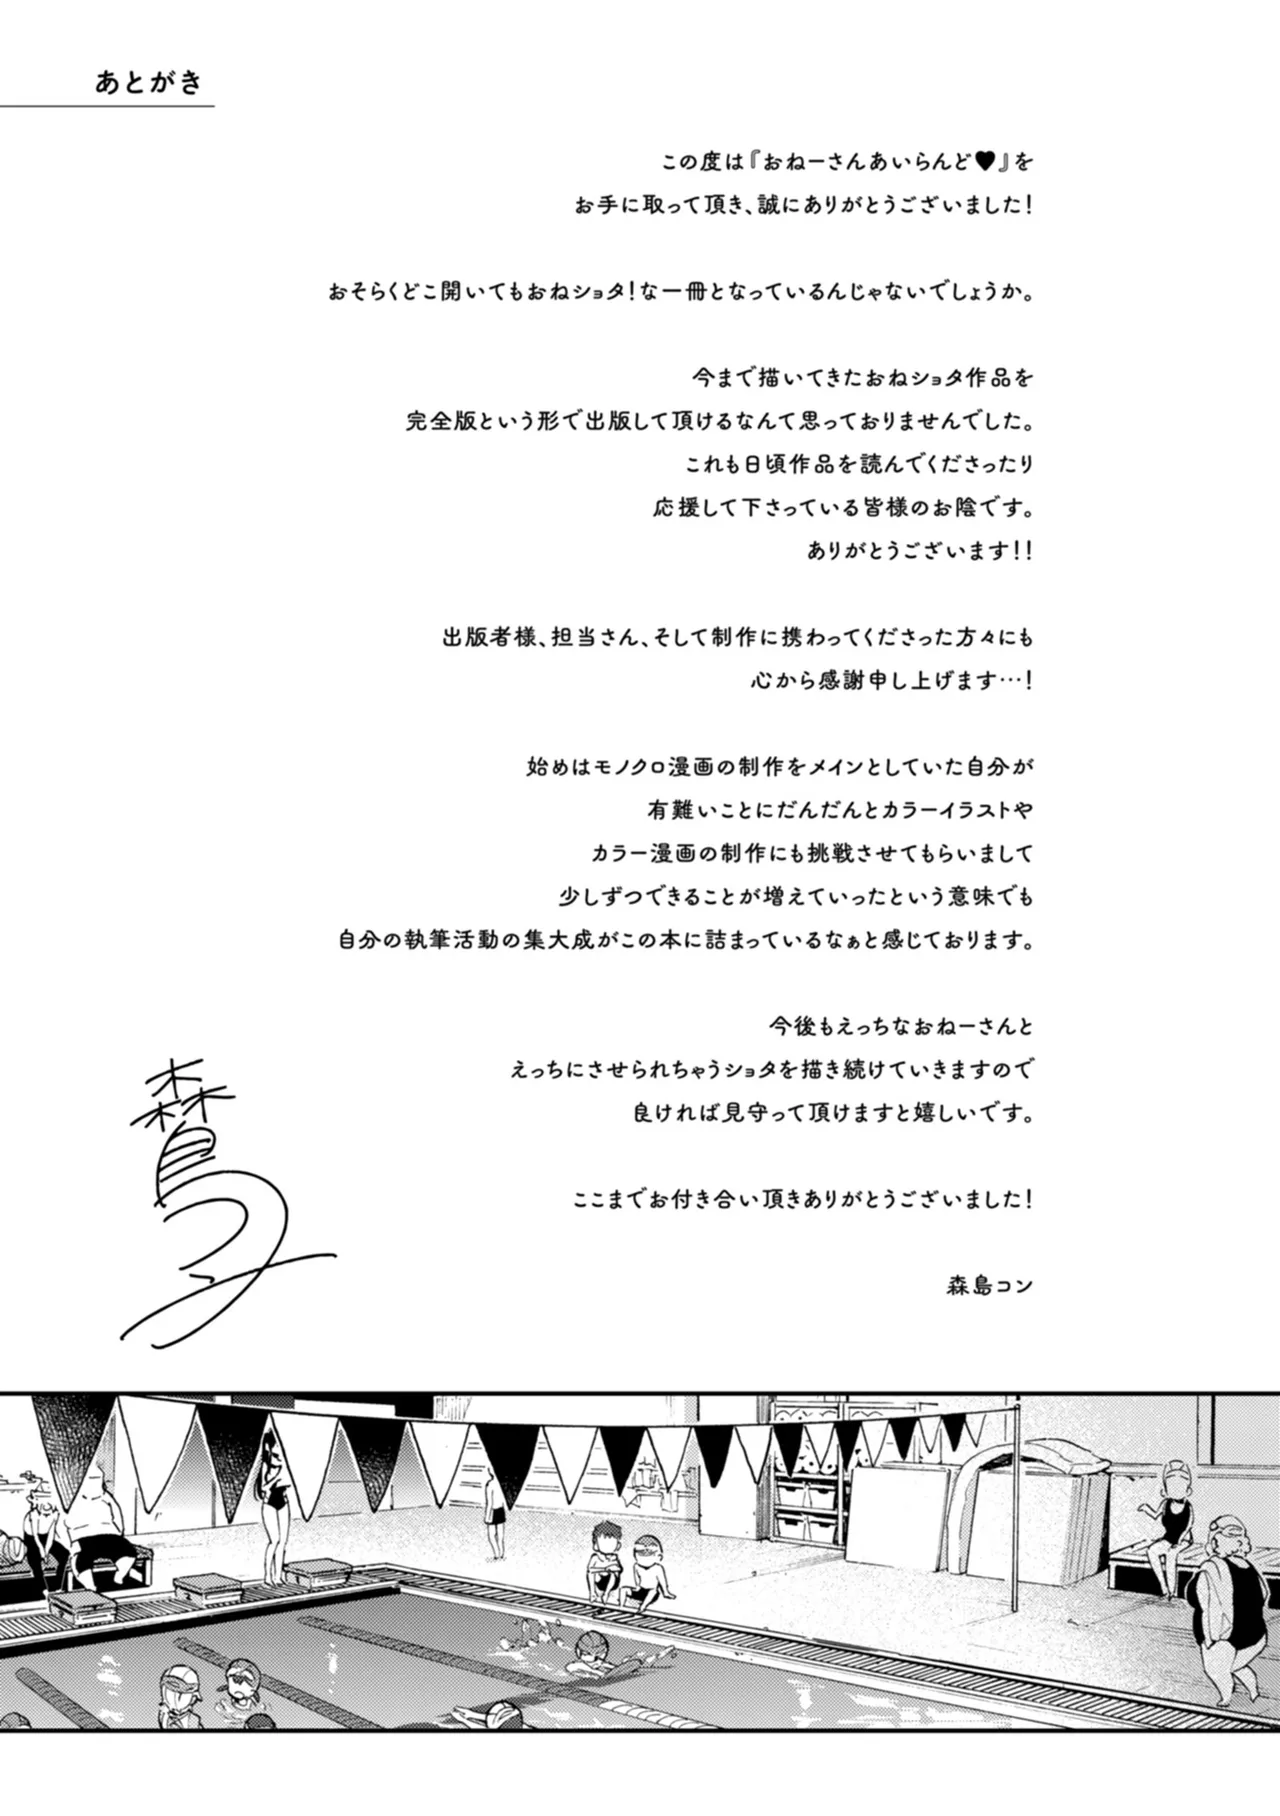 あとがき
この度は『おねーさんあいらんど♥』を
お手に取って頂き、誠にありがとうございました！
おそらくどこ開いてもおねショタ！な一冊となっているんじゃないでしょうか。
今まで描いてきたおねショタ作品を
完全版という形で出版して頂けるなんて思っておりませんでした。
これも日頃作品を読んでくださったり
応援して下さっている皆様のお陰です。
ありがとうございます！！
出版者様、担当さん、そして制作に携わってくださった方々にも
心から感謝申し上げます…！
始めはモノクロ漫画の制作をメインとしていた自分が
有難いことにだんだんとカラーイラストや
カラー漫画の制作にも挑戦させてもらいまして
少しずつできることが増えていったという意味でも
自分の執筆活動の集大成がこの本に詰まっているなぁと感じております。
今後もえっちなおねーさんと
えっちにさせられちゃうショタを描き続けていきますので
良ければ見守って頂けますと嬉しいです。
ここまでお付き合い頂きありがとうございました！
森島コン
森島コン